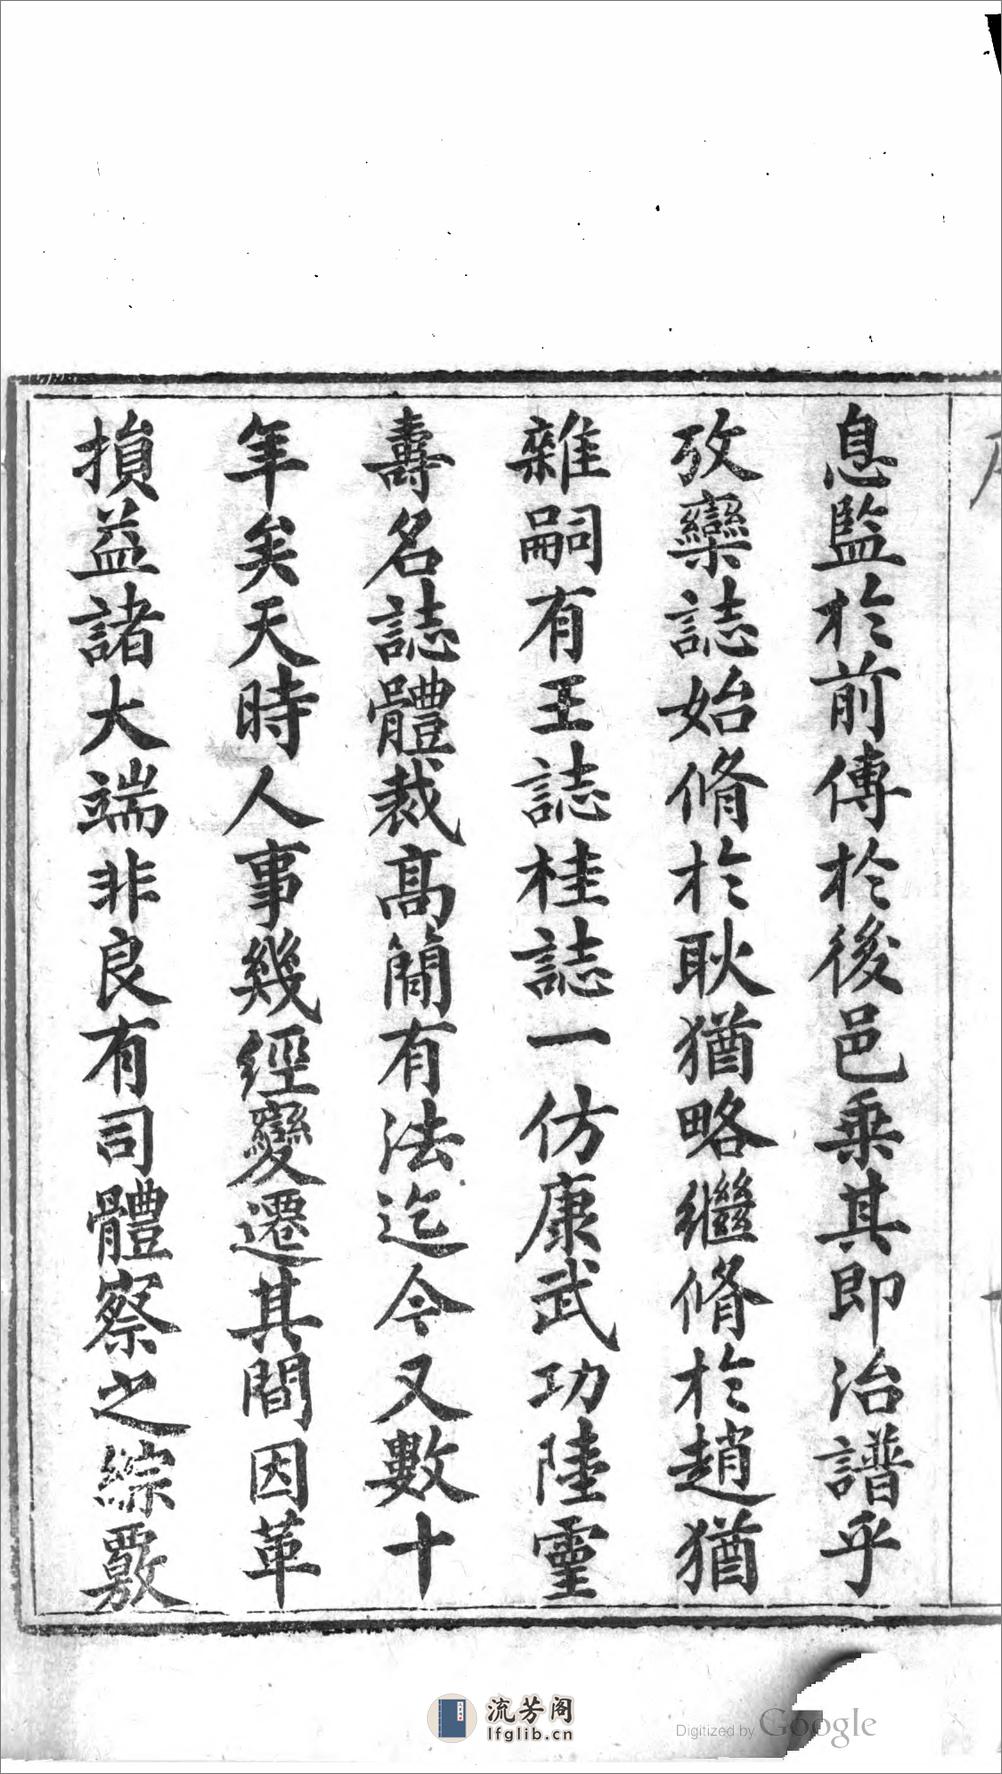 息監於前傳於後邑乗其即治譜乎
攷欒誌始脩於耿猶略繼脩於趙猶
雜嗣有王誌桂誌一仿康武功陸霊
壽名誌體裁髙簡有法迄今又數十
年矣天時人事幾經變遷其間因革
損益諸大端非良有司體察之綜覈
流芳阁
lfglib.cn
Digitized by Google